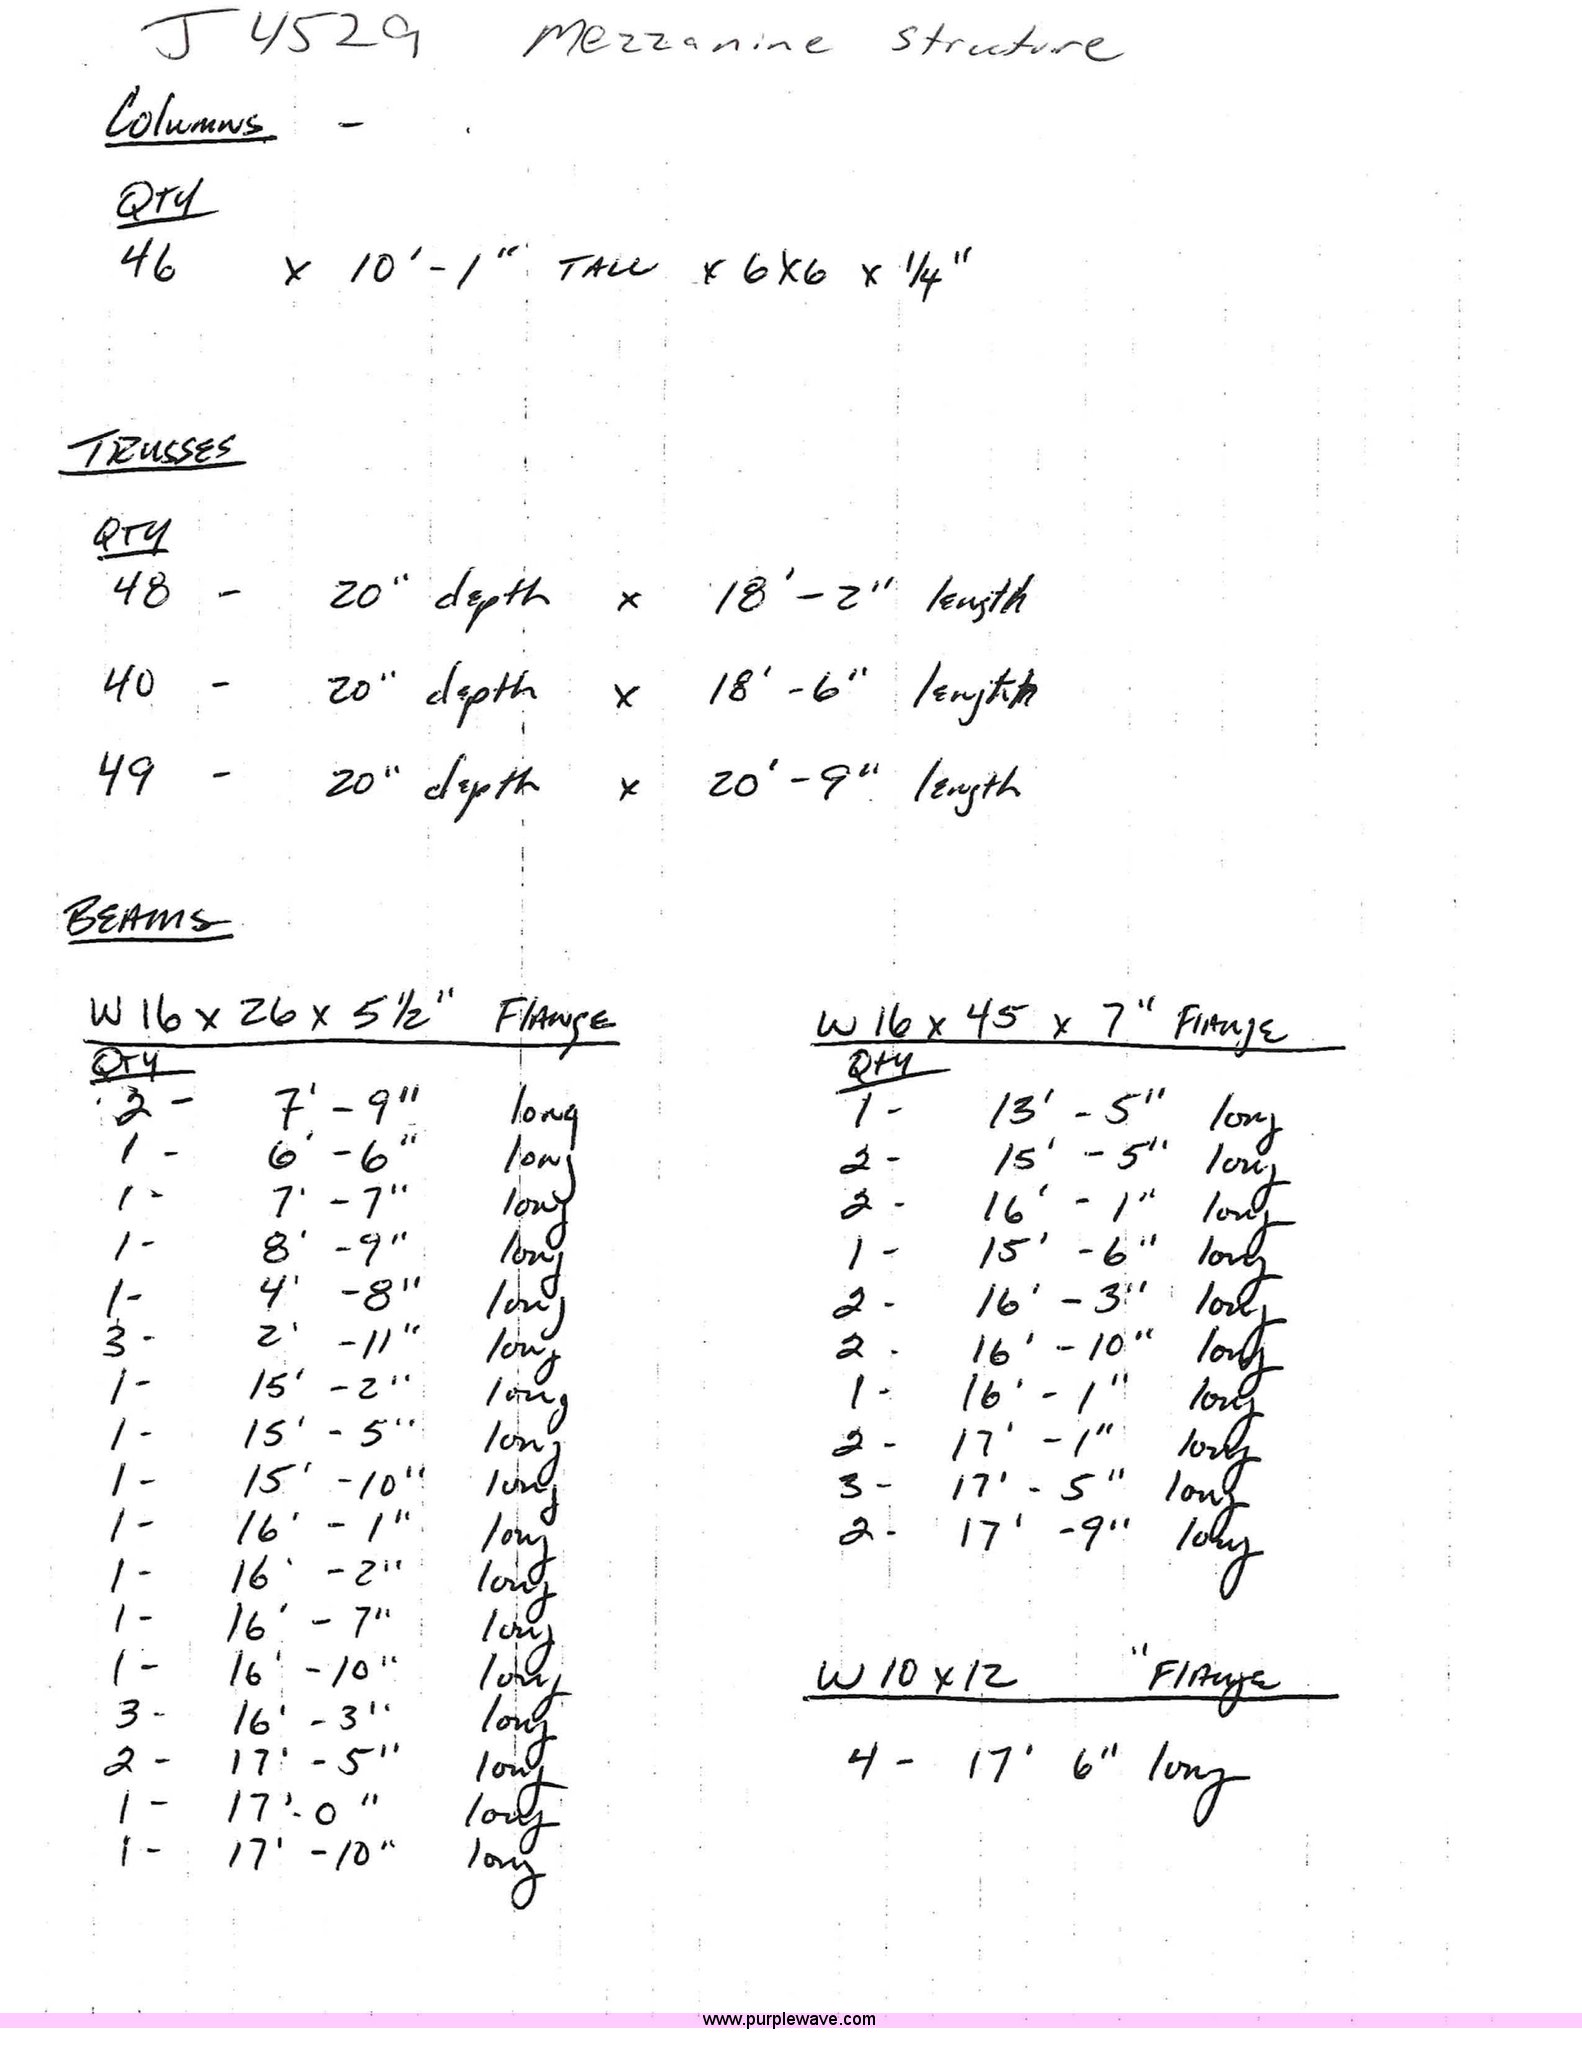 J 4529 Mezzanine structure
Columns -
QTY
46 x 10'-1" TALL x 6x6 x 1/4"
TRUSSES
QTY
48 - 20" depth x 18'-2" length
40 - 20" depth x 18'-6" length
49 - 20" depth x 20'-9" length
BEAMS
W16 x 26 x 5 1/2" Flange
QTY
2 - 7'-9" long
1 - 6'-6" long
1 - 7'-7" long
1 - 8'-9" long
1 - 4'-8" long
3 - 2'-11" long
1 - 15'-2" long
1 - 15'-5" long
1 - 15'-10" long
1 - 16'-1" long
1 - 16'-2" long
1 - 16'-7" long
1 - 16'-10" long
3 - 16'-3" long
2 - 17'-5" long
1 - 17'-0" long
1 - 17'-10" long
W16 x 45 x 7" Flange
Qty
1 - 13'-5" long
2 - 15'-5" long
2 - 16'-1" long
1 - 15'-6" long
2 - 16'-3" long
2 - 16'-10" long
1 - 16'-1" long
2 - 17'-1" long
3 - 17'-5" long
2 - 17'-9" long
W10 x 12 "Flange
4 - 17' 6" long
www.purplewave.com